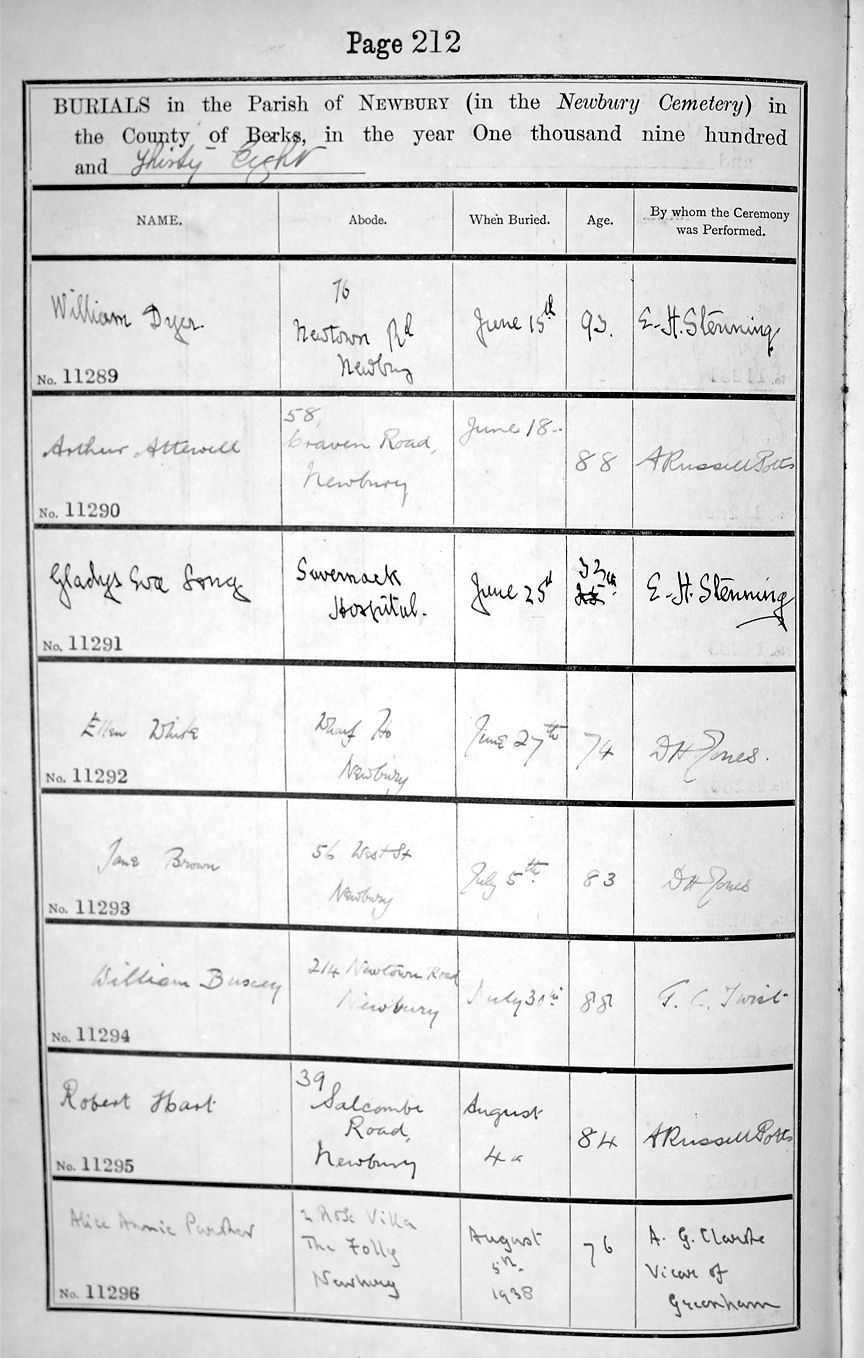 Page 212
BURIALS in the Parish of NEWBURY (in the Newbury Cemetery) in
the County of Berks, in the year One thousand nine hundred
and Thirty Eight
NAME. Abode. When Buried. Age. By whom the Ceremony
was Performed.
William Dyer.
No. 11289
76
Newtown Rd
Newbury
June 15th
93.
E-H. Stenning
Arthur Attewell
No. 11290
58,
Craven Road,
Newbury
June 18
88
A Russell Potts
Gladys Eva Long
No. 11291
Savernack
Hospital.
June 25
32
E-H. Stenning
Ellen White
No. 11292
Wharf Ho
Newbury
June 27th
74
D H Jones.
Jane Brown
No. 11293
56 West St
Newbury
July 5th
83
D H Jones
William
No. 11294
214 Newtown Road
Newbury
July 30th
88
T. C. Twist
Robert Hart
No. 11295
39
Salcombe
Road,
Newbury
August
4
84
A Russell Potts
Alice Annie
No. 11296
2 Rose Villa
The Folly
Newbury
August
5th
1938
76
A. G. Clarke
Vicar of
Greenham